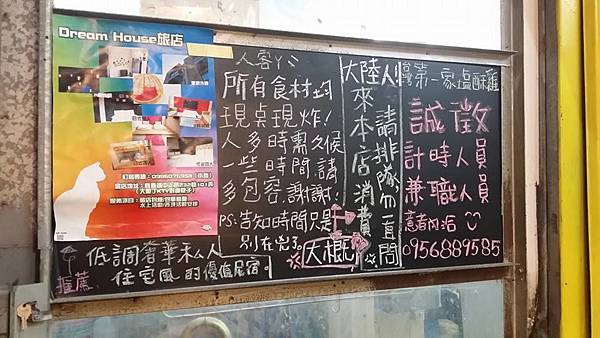 Dream House旅店
人客ㄚ
所有食材均
現桌現炸!
人多時需久候
一些時間請
多包容.謝謝!
PS:告知時間只是
大概
大陸人!
來本店消費
請排隊勿一直問
台灣第一家塩酥雞
誠徵
計時人員
兼職人員
意者內洽
0956889585
推薦
低調奢華私人
住宅風的優值民宿。